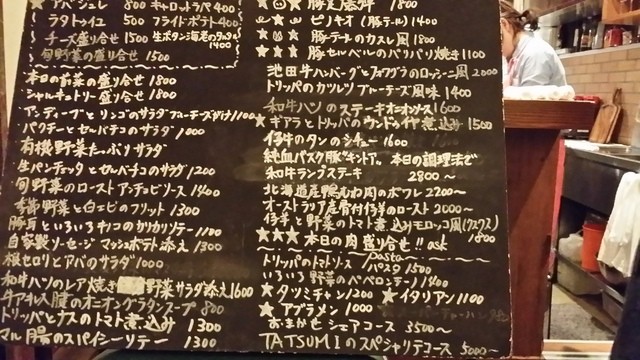 ★アバジュレ 800 キャロットラペ 400
ラタトゥイユ 500 フライドポテト 400
チーズ盛り合せ 1500 生ボタン海老のタルタル 1400
旬野菜の盛り合せ 1500
本日の前菜の盛り合せ 1800
シャルキュトリー盛り合せ 1800
アンディーブとリンゴのサラダ ブルーチーズがけ 1100
パクチーとセルバチコのサラダ 1000
有機野菜たっぷりサラダ
生パンチェッタとセルバチコのサラダ 1200
旬野菜のロースト アンチョビソース 1400
季節野菜と白エビのフリット 1300
豚耳といろいろキノコのカリカリソテー 1100
自家製ソーセージ マッシュポテト添え 1300
根セロリとアバのサラダ 1000
和牛ハツのレア焼き 野菜サラダ添え 1600
牛アキレス腱のオニオングラタンスープ 800
トリッパとナスのトマト煮込み 1300
マル腸のスパイシーソテー 1300
1800
ピノキオ(豚テール) 1400
豚テールのカスレ風 1800
★★★豚セルベルのパリパリ焼き 1100
池田牛ハンバーグとフォアグラのロッシーニ風 2000
トリッパのカツレツ ブルーチーズ風味 1400
和牛ハツのステーキ オニオンソース 1600
★ギアラとトリッパのウンドゥイヤ煮込み 1500
仔牛のタンのシチュー 1600
純血バスク豚"キントア" 本日の調理法で
和牛ランプステーキ 2800〜
北海道産鴨むね肉のポワレ 2200〜
オーストラリア産骨付仔羊のロースト 2000〜
仔羊と野菜のトマト煮込みモロッコ風(クスクス) 1800
★★★本日の肉盛り合せ!! ask
Pasta
トリッパのトマトソースパスタ 1500
いろいろ野菜のペペロンチーノ 1400
★タツミチャン 1200 ★イタリアン 1100
★アブラメン 1000
おまかせシェアコース 3500〜
TATSUMIのスペシャリテコース 5000〜